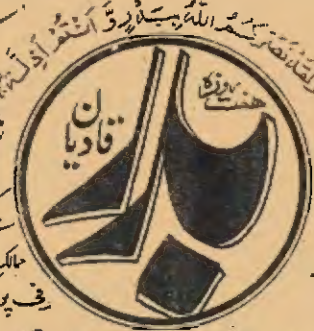 وَلَقَدْ نَصَرَكُمُ اللّٰهُ بِبَدْرٍ وَّ اَنْتُمْ اَذِلَّةٌ
ہفت روزہ
بدر
قادیان